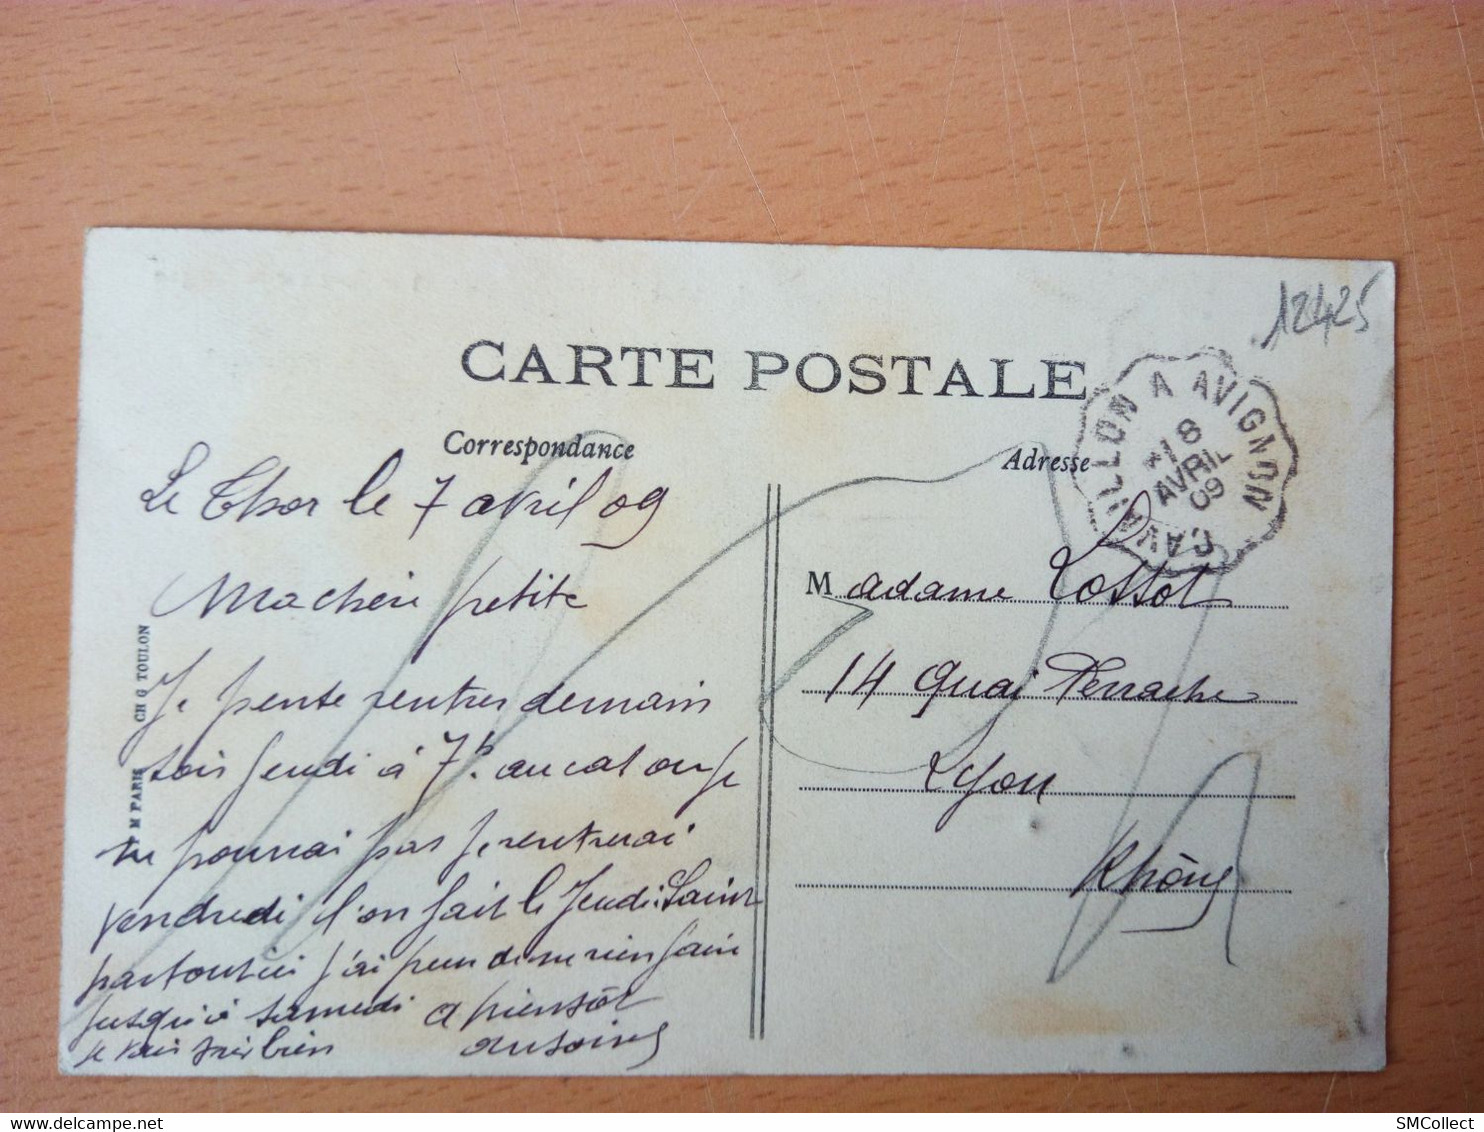 12425
CARTE POSTALE
Correspondance
Adresse
CAVAILLON A AVIGNON
18
AVRIL
09
Le Thor le 7 avril 09
Ma chérie petite
Je pense rentrer demain
soir Jeudi à 7h. au cas ou je
ne pourrai pas je rentrerai
vendredi l'on fait le Jeudi Saint
partout ici j'ai peur de ne rien faire
jusqu'à samedi a bientôt
je vais très bien Antoine
Madame Lossot
14 Quai Perrache
Lyon
Rhône
CH G TOULON
M PARIS
SMCollect